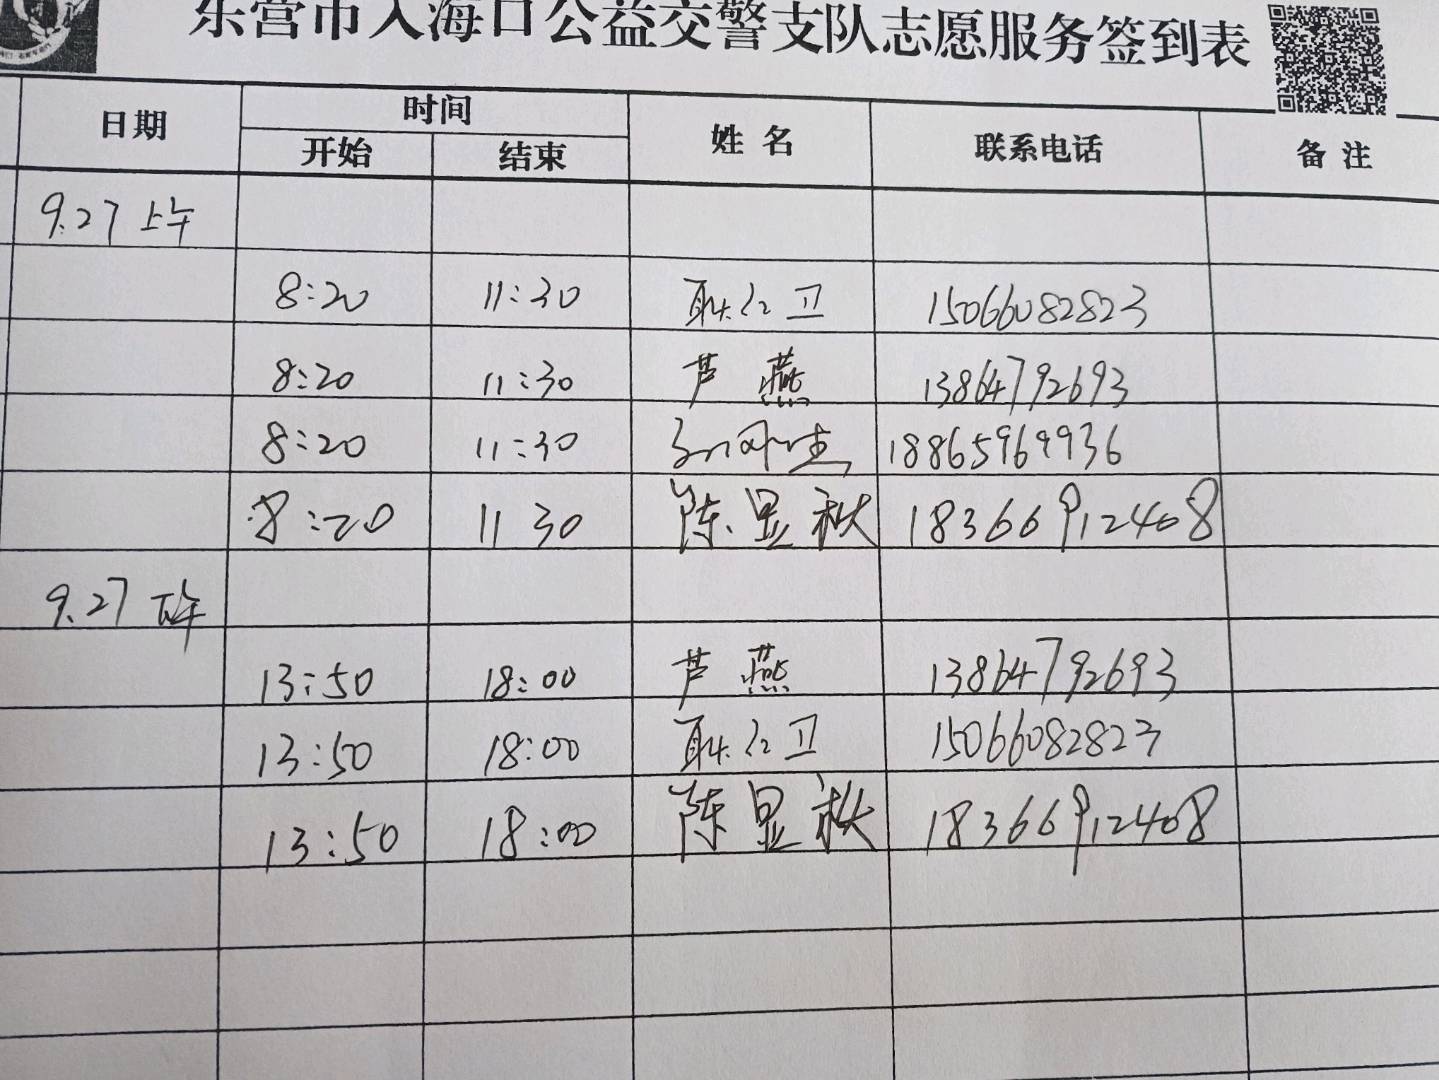 东营市入海口公益交警支队志愿服务签到表
日期 时间 姓名 联系电话 备注
开始 结束
9.27 上午
8:20 11:30 耿红卫 15066082823
8:20 11:30 芦燕 13864792693
8:20 11:30 18865969936
8:20 11 30 陈显秋 18366912408
9.27 下午
13:50 18:00 芦燕 13864792693
13:50 18:00 耿红卫 15066082823
13:50 18:00 陈显秋 18366912408